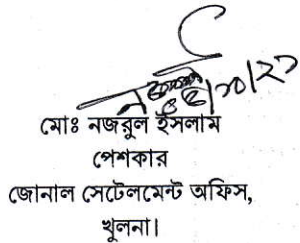 মোঃ নজরুল ইসলাম
পেশকার
জোনাল সেটেলমেন্ট অফিস,
খুলনা।